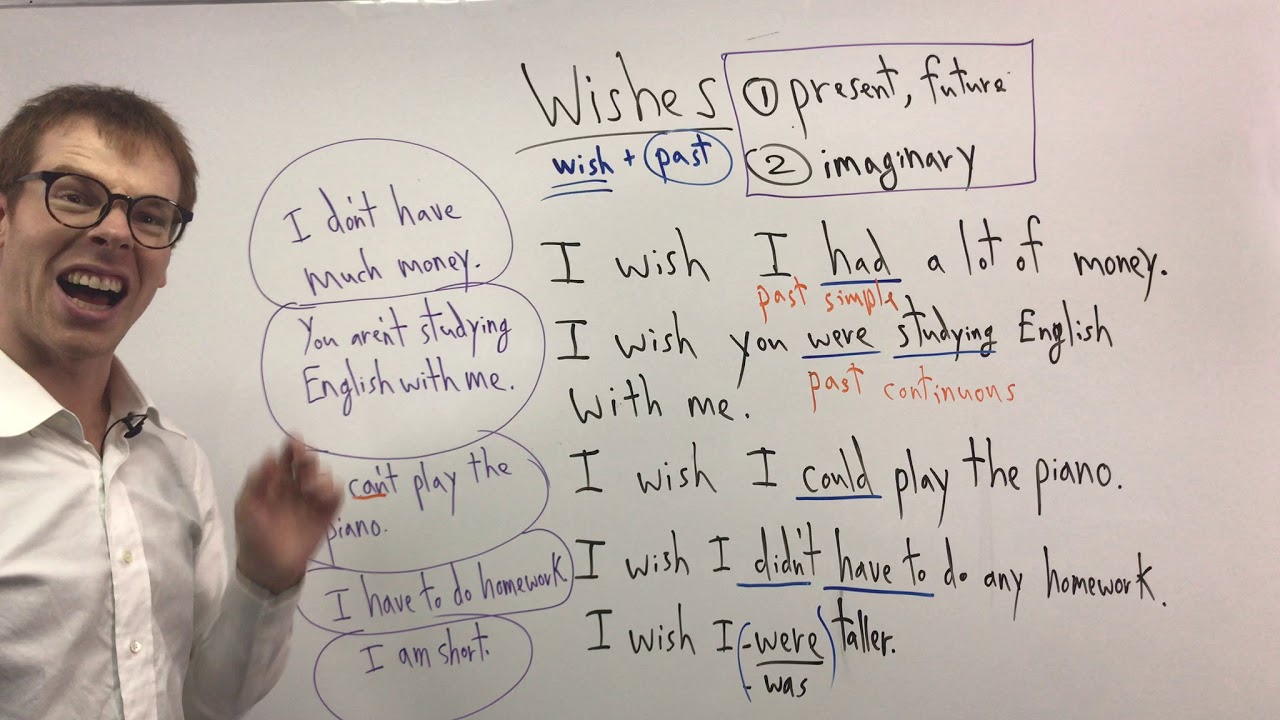 Wishes
wish + past
① present, future
② imaginary
I don't have
much money.
You aren't studying
English with me.
can't play the
piano.
I have to do homework
I am short.
I wish I had a lot of money.
past simple
I wish you were studying English
with me.
past continuous
I wish I could play the piano.
I wish I didn't have to do any homework.
I wish I (-were) taller.
- was